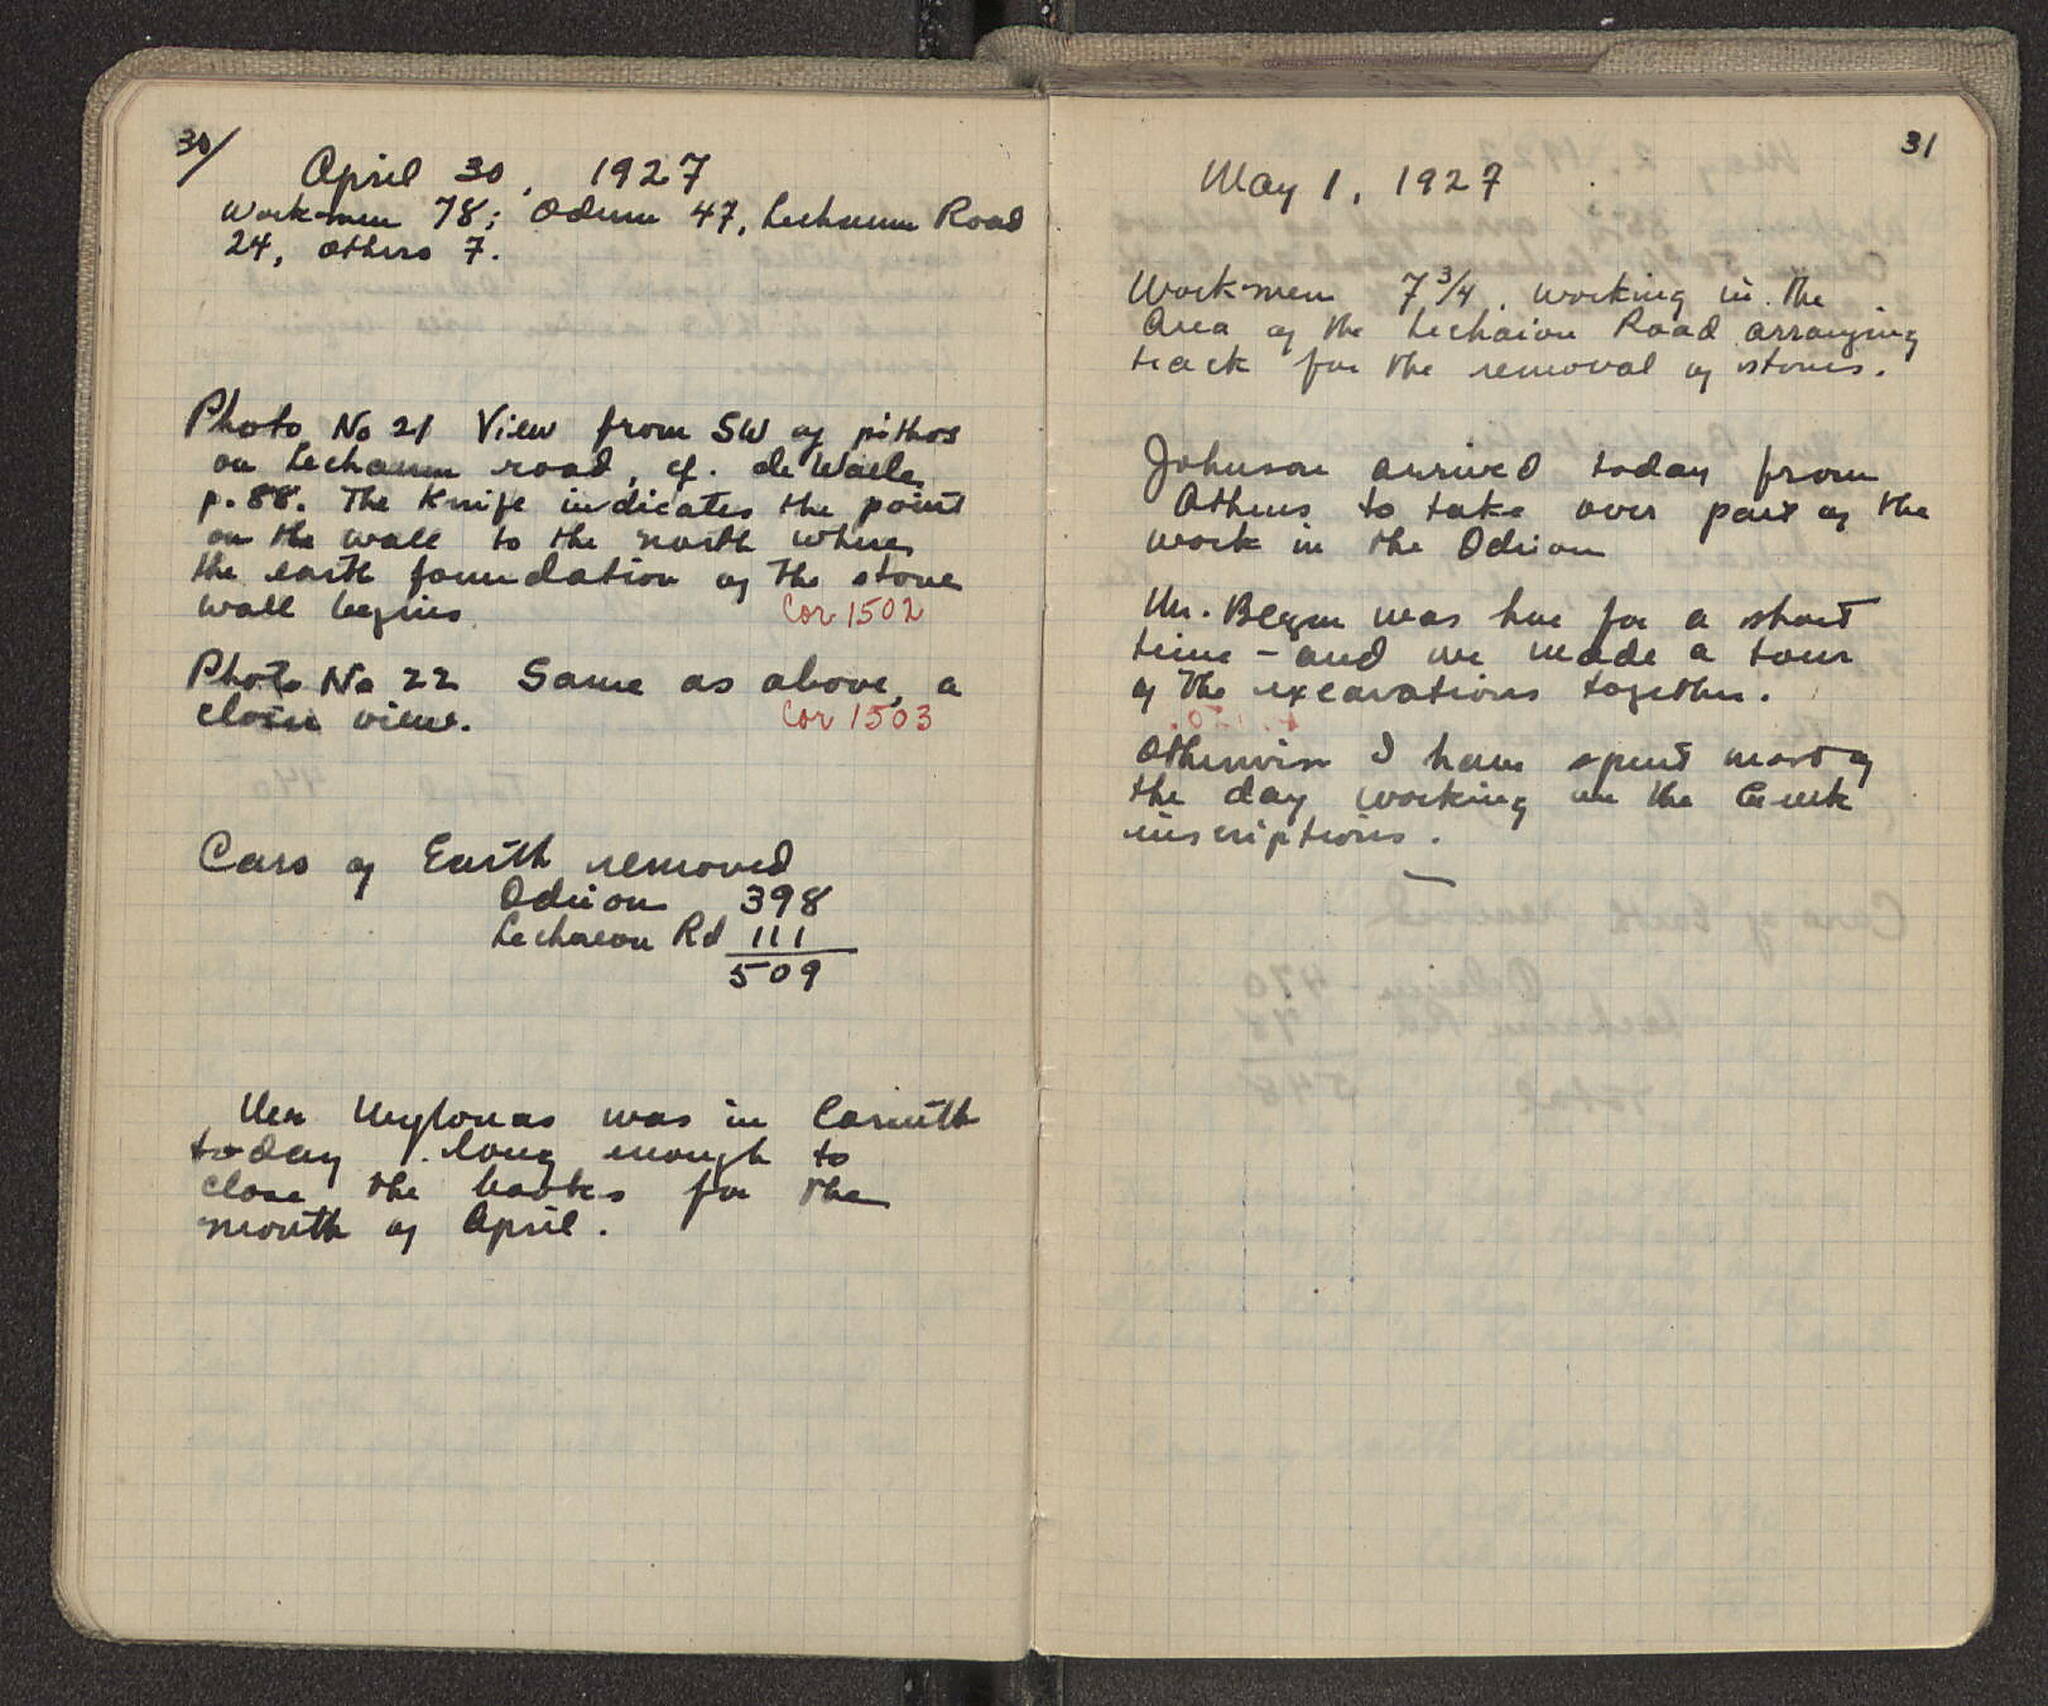 30/
April 30, 1927
Workmen 78; Odeum 47, Lechaeum Road
24, others 7.
Photo No 21 View from SW of pithos
on Lechaeum road, cf. de Waele,
p. 88. The knife indicates the point
on the wall to the north where
the earth foundation of the stone
wall begins.
Cor 1502
Photo No 22 Same as above, a
closer view.
Cor 1503
Cars of Earth removed
Odeion 398
Lechaeon Rd 111
509
Mylonas was in Corinth
today long enough to
close the books for the
month of April.
31
May 1, 1927
Workmen 7 3/4, working in the
area of the Lechaion Road arranging
track for the removal of stones.
Johnson arrived today from
Athens to take over part of the
work in the Odeion
Mr. was here for a short
time - and we made a tour
of the excavations together.
Otherwise I have spent most of
the day working on the Greek
inscriptions.